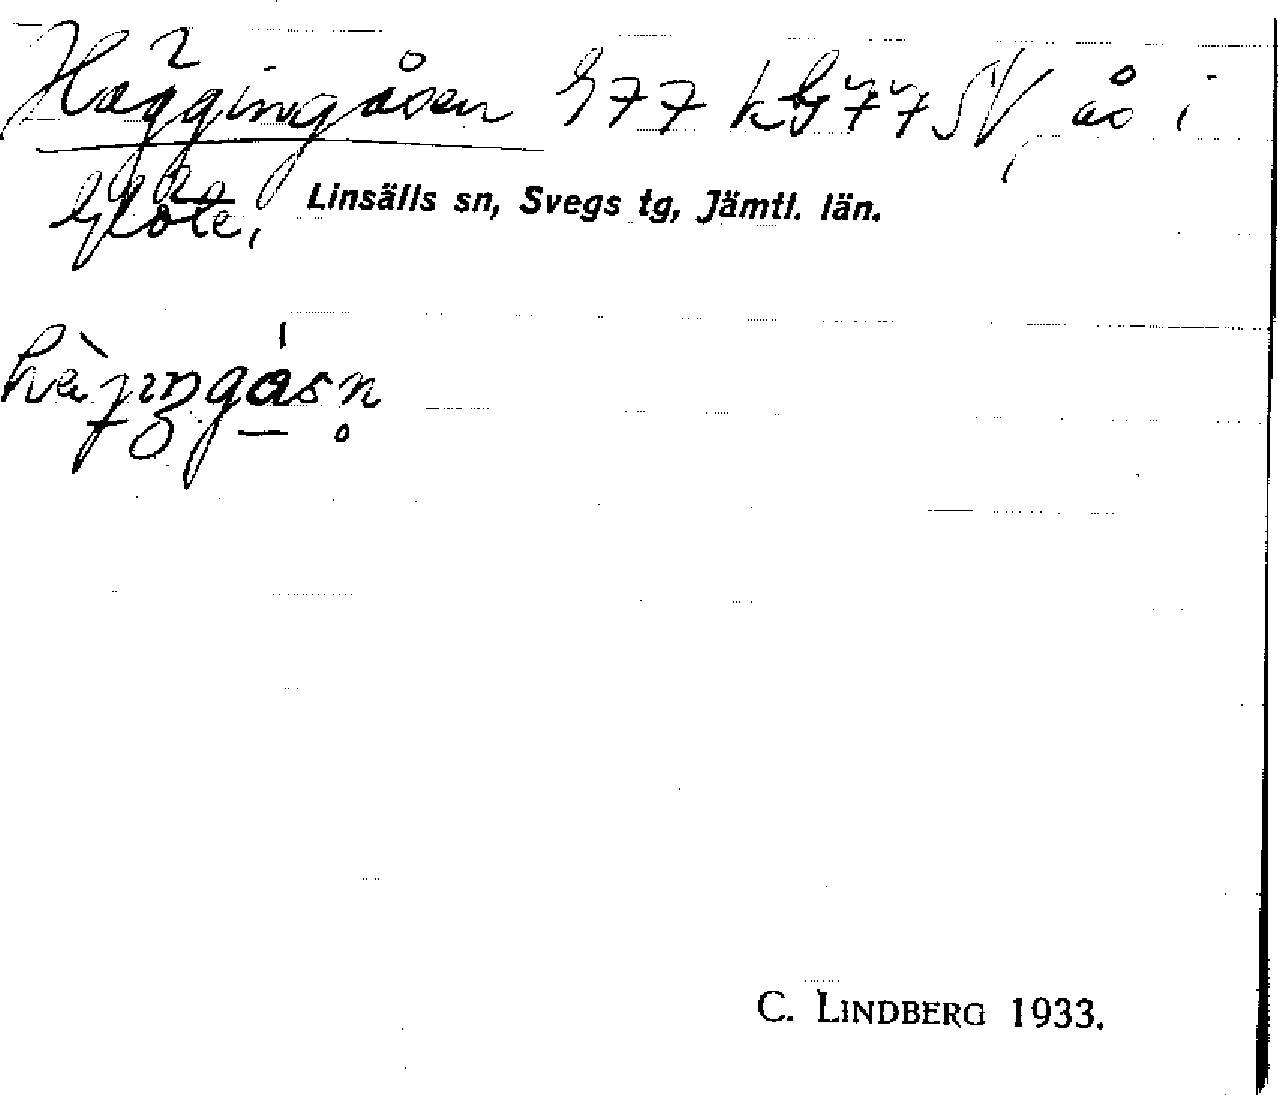 Häggingåsen G77 kG77SV, ås i
Glöte, Linsälls sn, Svegs tg, Jämtl. län.
C. LINDBERG 1933.